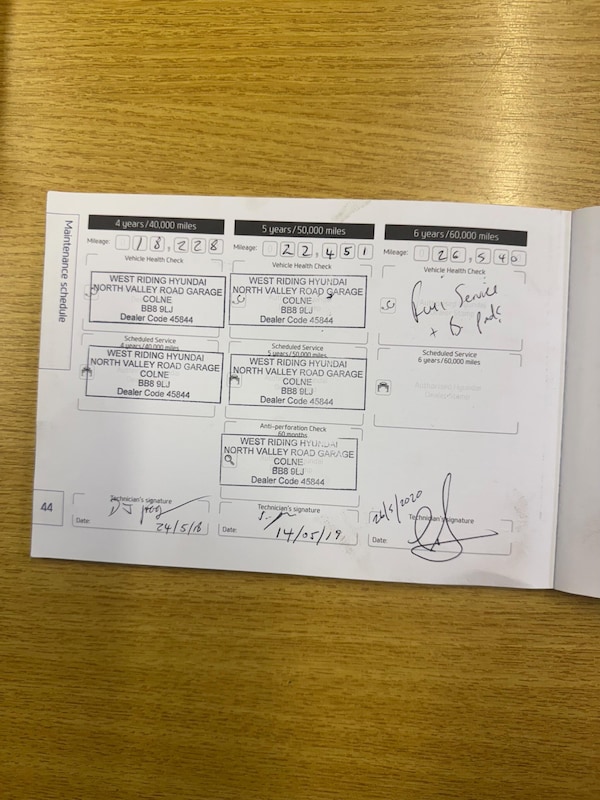 Maintenance schedule
44
4 years/40,000 miles
Mileage: 18,228
Vehicle Health Check
WEST RIDING HYUNDAI
NORTH VALLEY ROAD GARAGE
COLNE
BB8 9LJ
Dealer Code 45844
Scheduled Service
4 years/40,000 miles
WEST RIDING HYUNDAI
NORTH VALLEY ROAD GARAGE
COLNE
BB8 9LJ
Dealer Code 45844
Technician's signature
Date: 24/5/18
5 years/50,000 miles
Mileage: 22,451
Vehicle Health Check
WEST RIDING HYUNDAI
NORTH VALLEY ROAD GARAGE
COLNE
BB8 9LJ
Dealer Code 45844
Scheduled Service
5 years/50,000 miles
WEST RIDING HYUNDAI
NORTH VALLEY ROAD GARAGE
COLNE
BB8 9LJ
Dealer Code 45844
Anti-perforation Check
60 months
WEST RIDING HYUNDAI
NORTH VALLEY ROAD GARAGE
COLNE
BB8 9LJ
Dealer Code 45844
Technician's signature
Date: 14/05/19
6 years/60,000 miles
Mileage: 26,540
Vehicle Health Check
Full Service
+ Pads
Scheduled Service
6 years/60,000 miles
26/5/2020
Technician's signature
Date: